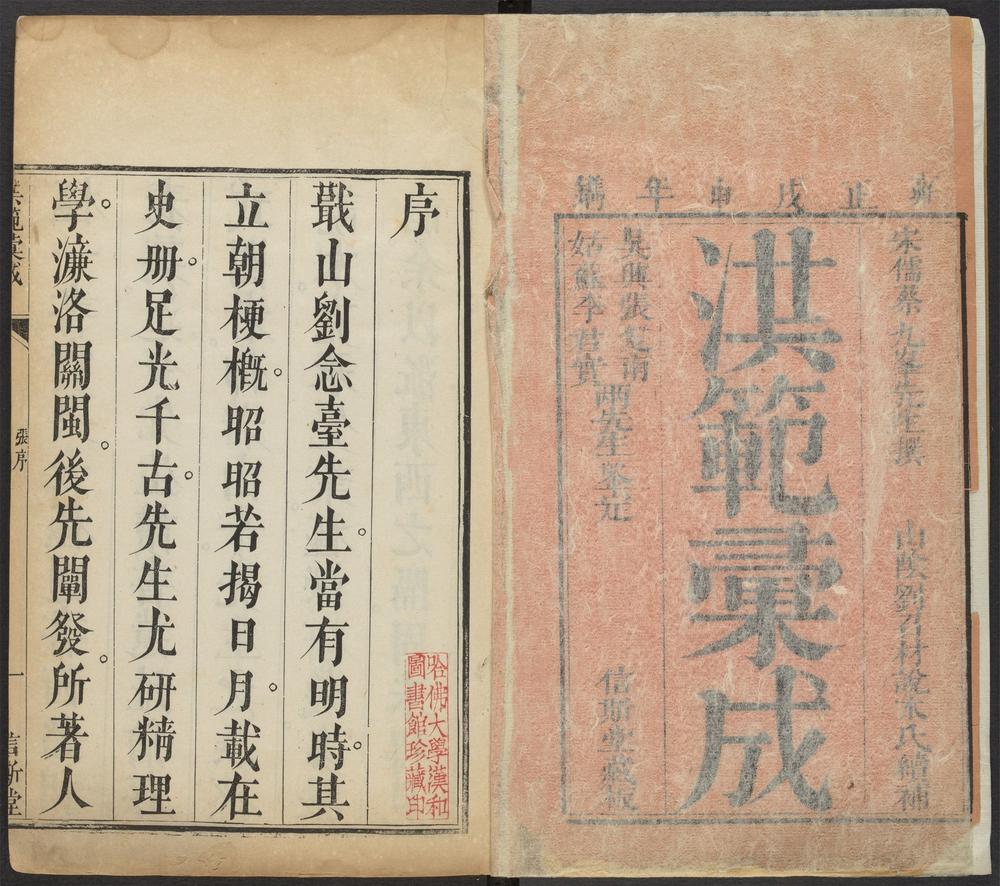 雍正戊申年鐫
宋儒蔡九峯先生撰
山陰劉材說氏續補
洪範彙成
吳興張南
姑蘇李君實
兩先生鑒定
信斯堂藏板
序
戢山劉念臺先生。當有明時。其
立朝梗概。昭昭若揭日月。載在
史册。足光千古。先生尤研精理
學。濂洛關閩。後先闡發。所著人
哈佛大學漢和
圖書館珍藏印
洪範彙成
張序
一
信斯堂